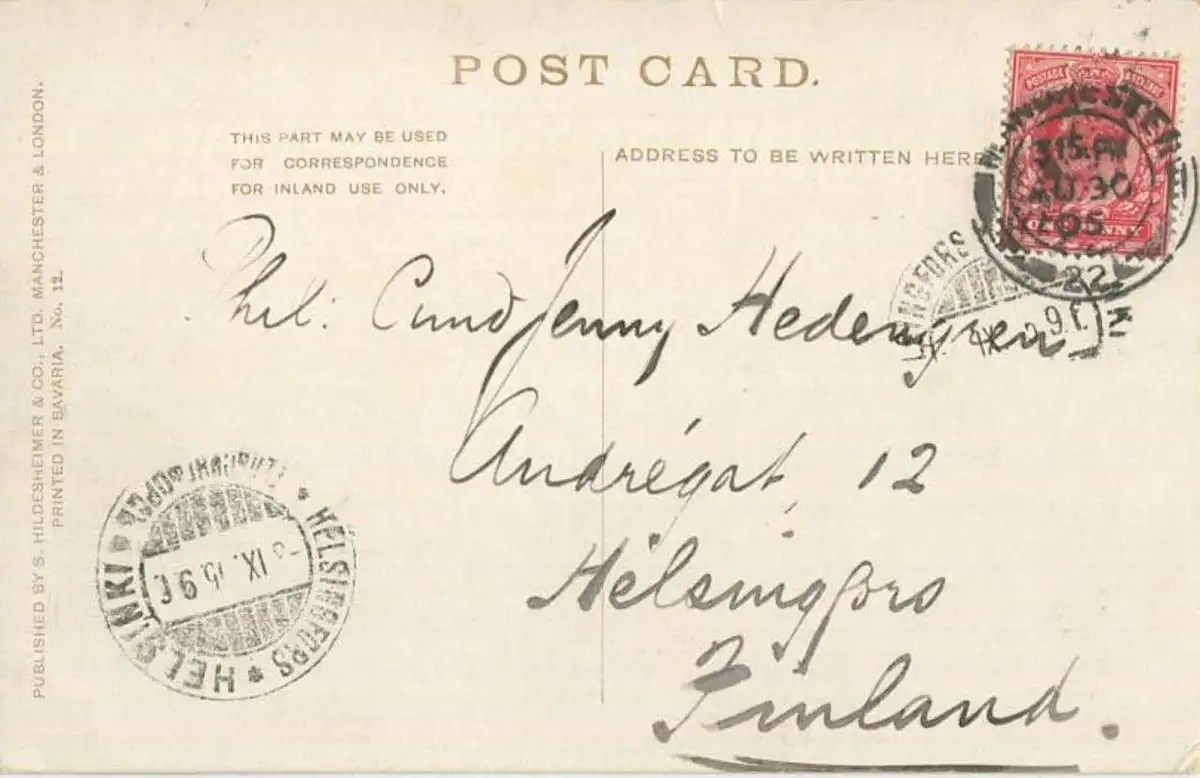 POST CARD.
THIS PART MAY BE USED
FOR CORRESPONDENCE
FOR INLAND USE ONLY.
ADDRESS TO BE WRITTEN HERE
POSTAGE
ONE PENNY
MANCHESTER
3 15.PM
AU 30
05
22
Phil: Cand Jenny Hedengren
Andrégat. 12
Helsingfors
Finland.
HELSINKI * HELSINGFORS
IX. 9 f.
PUBLISHED BY S. HILDESHEIMER & CO., LTD. MANCHESTER & LONDON.
PRINTED IN BAVARIA. No. 12.